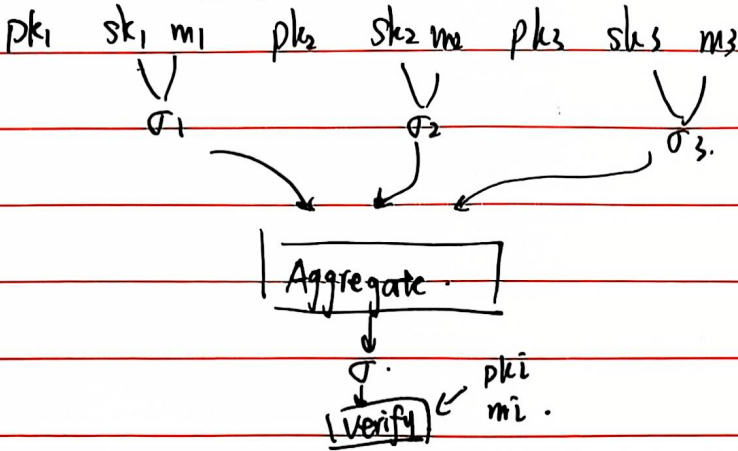 pk1 sk1 m1 pk2 sk2 m2 pk3 sk3 m3
σ1 σ2 σ3.
Aggregate.
σ.
pki
Verify mi.